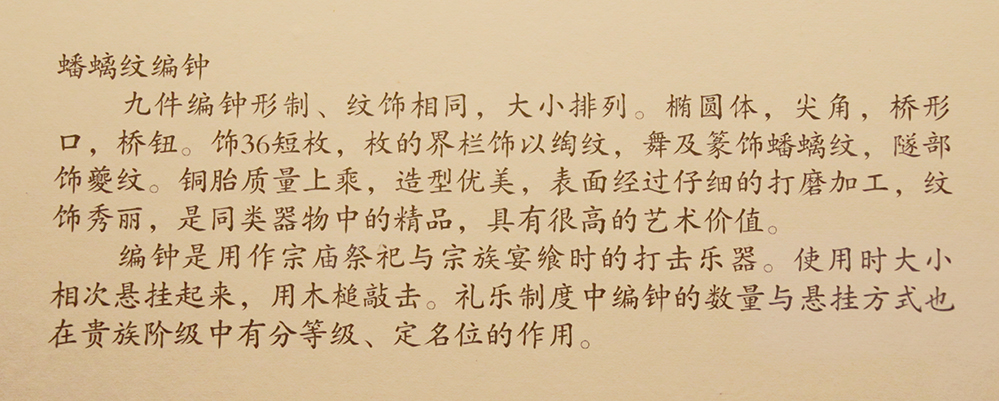 蟠螭纹编钟
九件编钟形制、纹饰相同，大小排列。椭圆体，尖角，桥形
口，桥钮。饰36短枚，枚的界栏饰以绹纹，舞及篆饰蟠螭纹，隧部
饰夔纹。铜胎质量上乘，造型优美，表面经过仔细的打磨加工，纹
饰秀丽，是同类器物中的精品，具有很高的艺术价值。
编钟是用作宗庙祭祀与宗族宴飨时的打击乐器。使用时大小
相次悬挂起来，用木槌敲击。礼乐制度中编钟的数量与悬挂方式也
在贵族阶级中有分等级、定名位的作用。